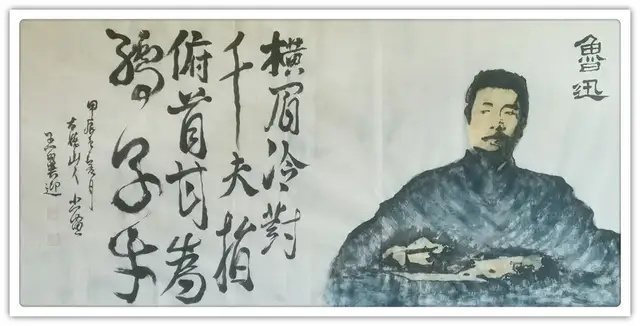 魯迅
横眉冷對
千夫指
俯首甘為
孺子牛
甲辰
山人